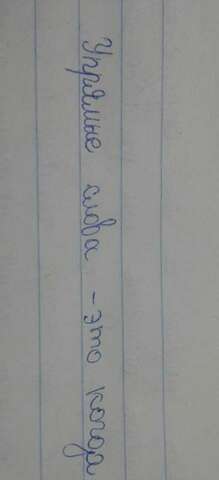 Упрямые слова - это когда